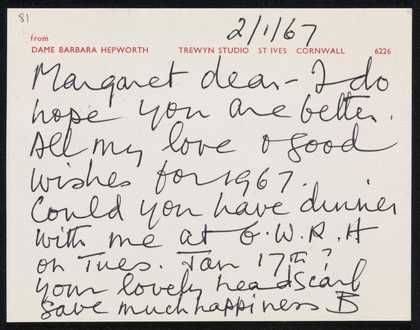 81
2/1/67
from
DAME BARBARA HEPWORTH TREWYN STUDIO ST IVES CORNWALL 6226
Margaret dear – I do
hope you are better.
All my love & good
wishes for 1967.
Could you have dinner
with me at G.W.R.H
on Tues. Jan 17th?
Your lovely headscarf
gave much happiness B